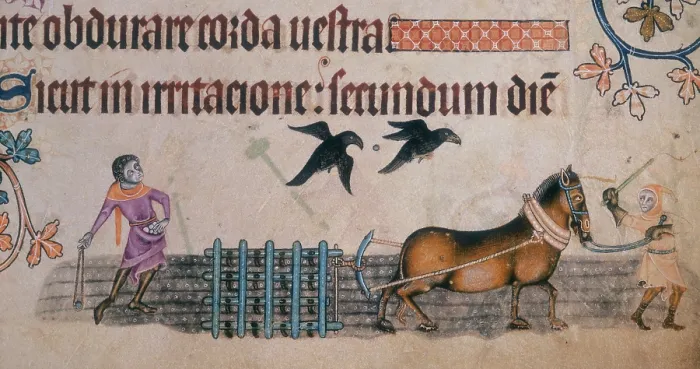 nte obdurare corda uestra:
Sicut in irritacione: secundum diē